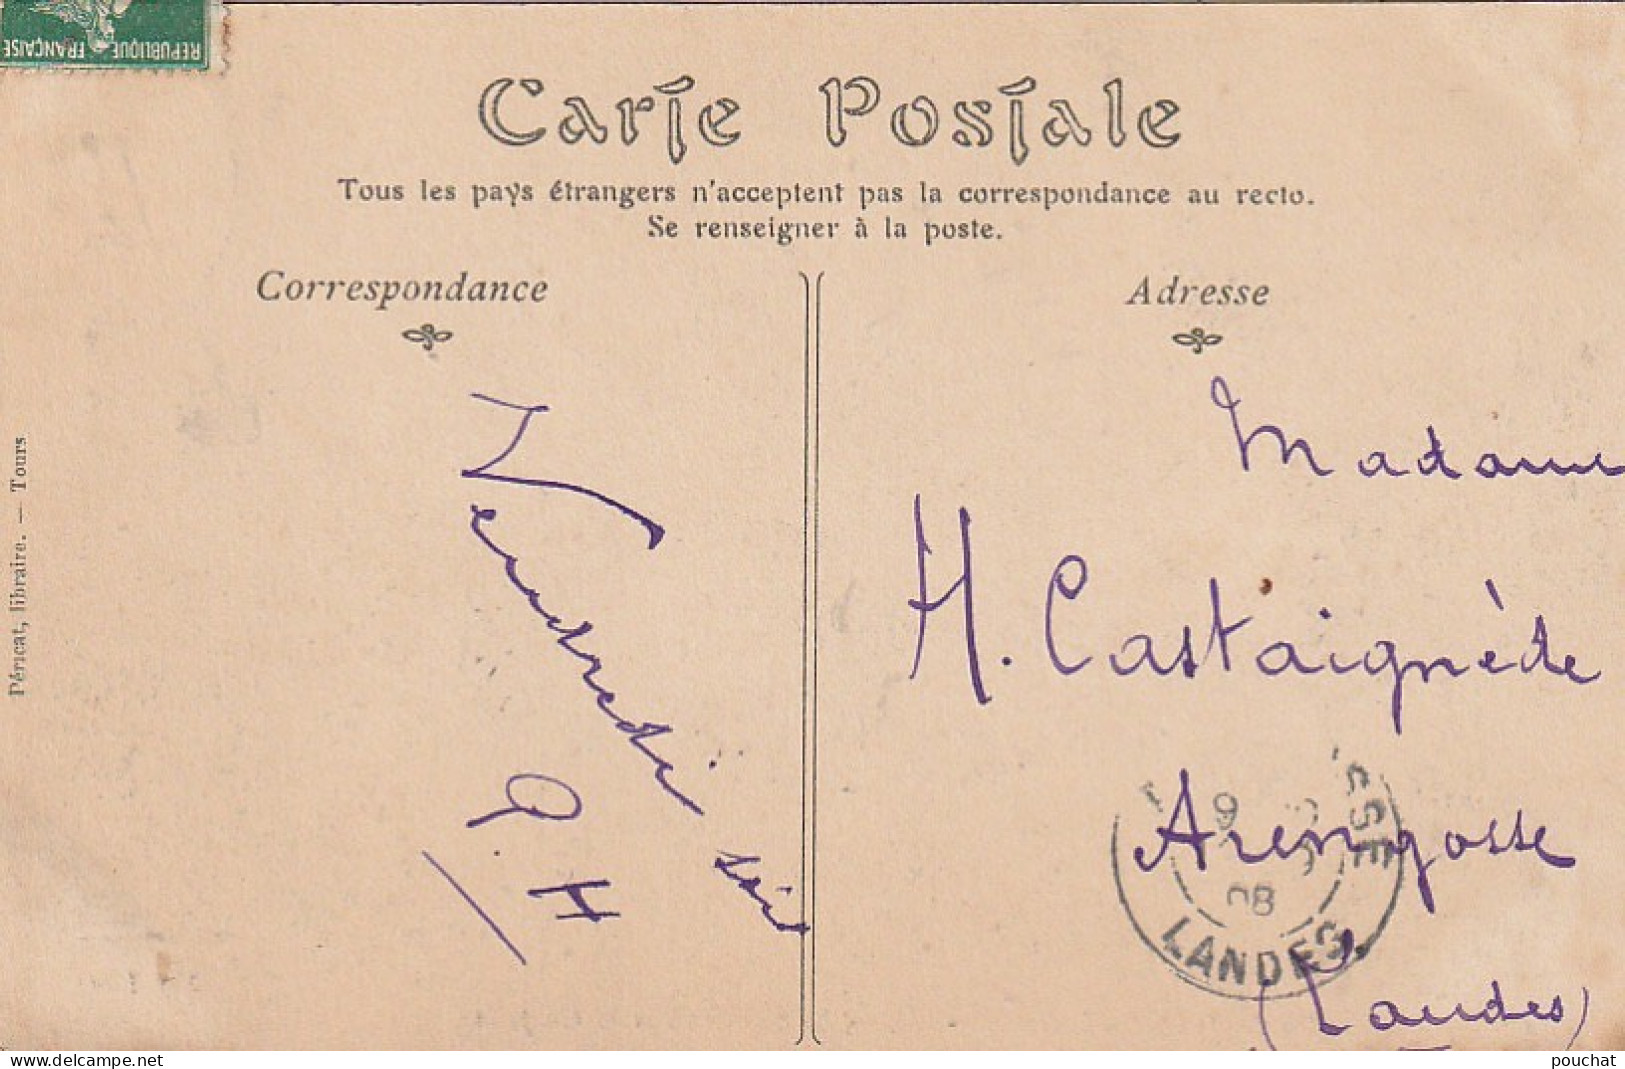 REPUBLIQUE FRANÇAISE
Carte Postale
Tous les pays étrangers n'acceptent pas la correspondance au recto.
Se renseigner à la poste.
Correspondance
Adresse
Péricat, libraire. — Tours
Vendredi soir
P. H
Madame
H. Castaignède
Arengosse
(Landes)
9
08
SSE
LANDES
www.delcampe.net
pouchat